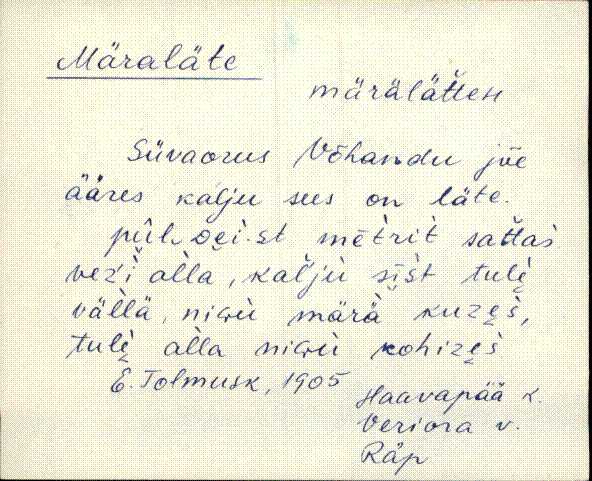 Märaläte
märäläťťeн
Süvaorus Võhandu jõe
ääres kalju sees on läte.
mētrìt saťťaš
alla, kaľjù sīst tulè̬
vällä, niɢù märä kuze̬s̀,
tulè̬ alla niɢù kohize̬s̀
E. Tolmusk, 1905
Haavapää k.
Veriora v.
Räp